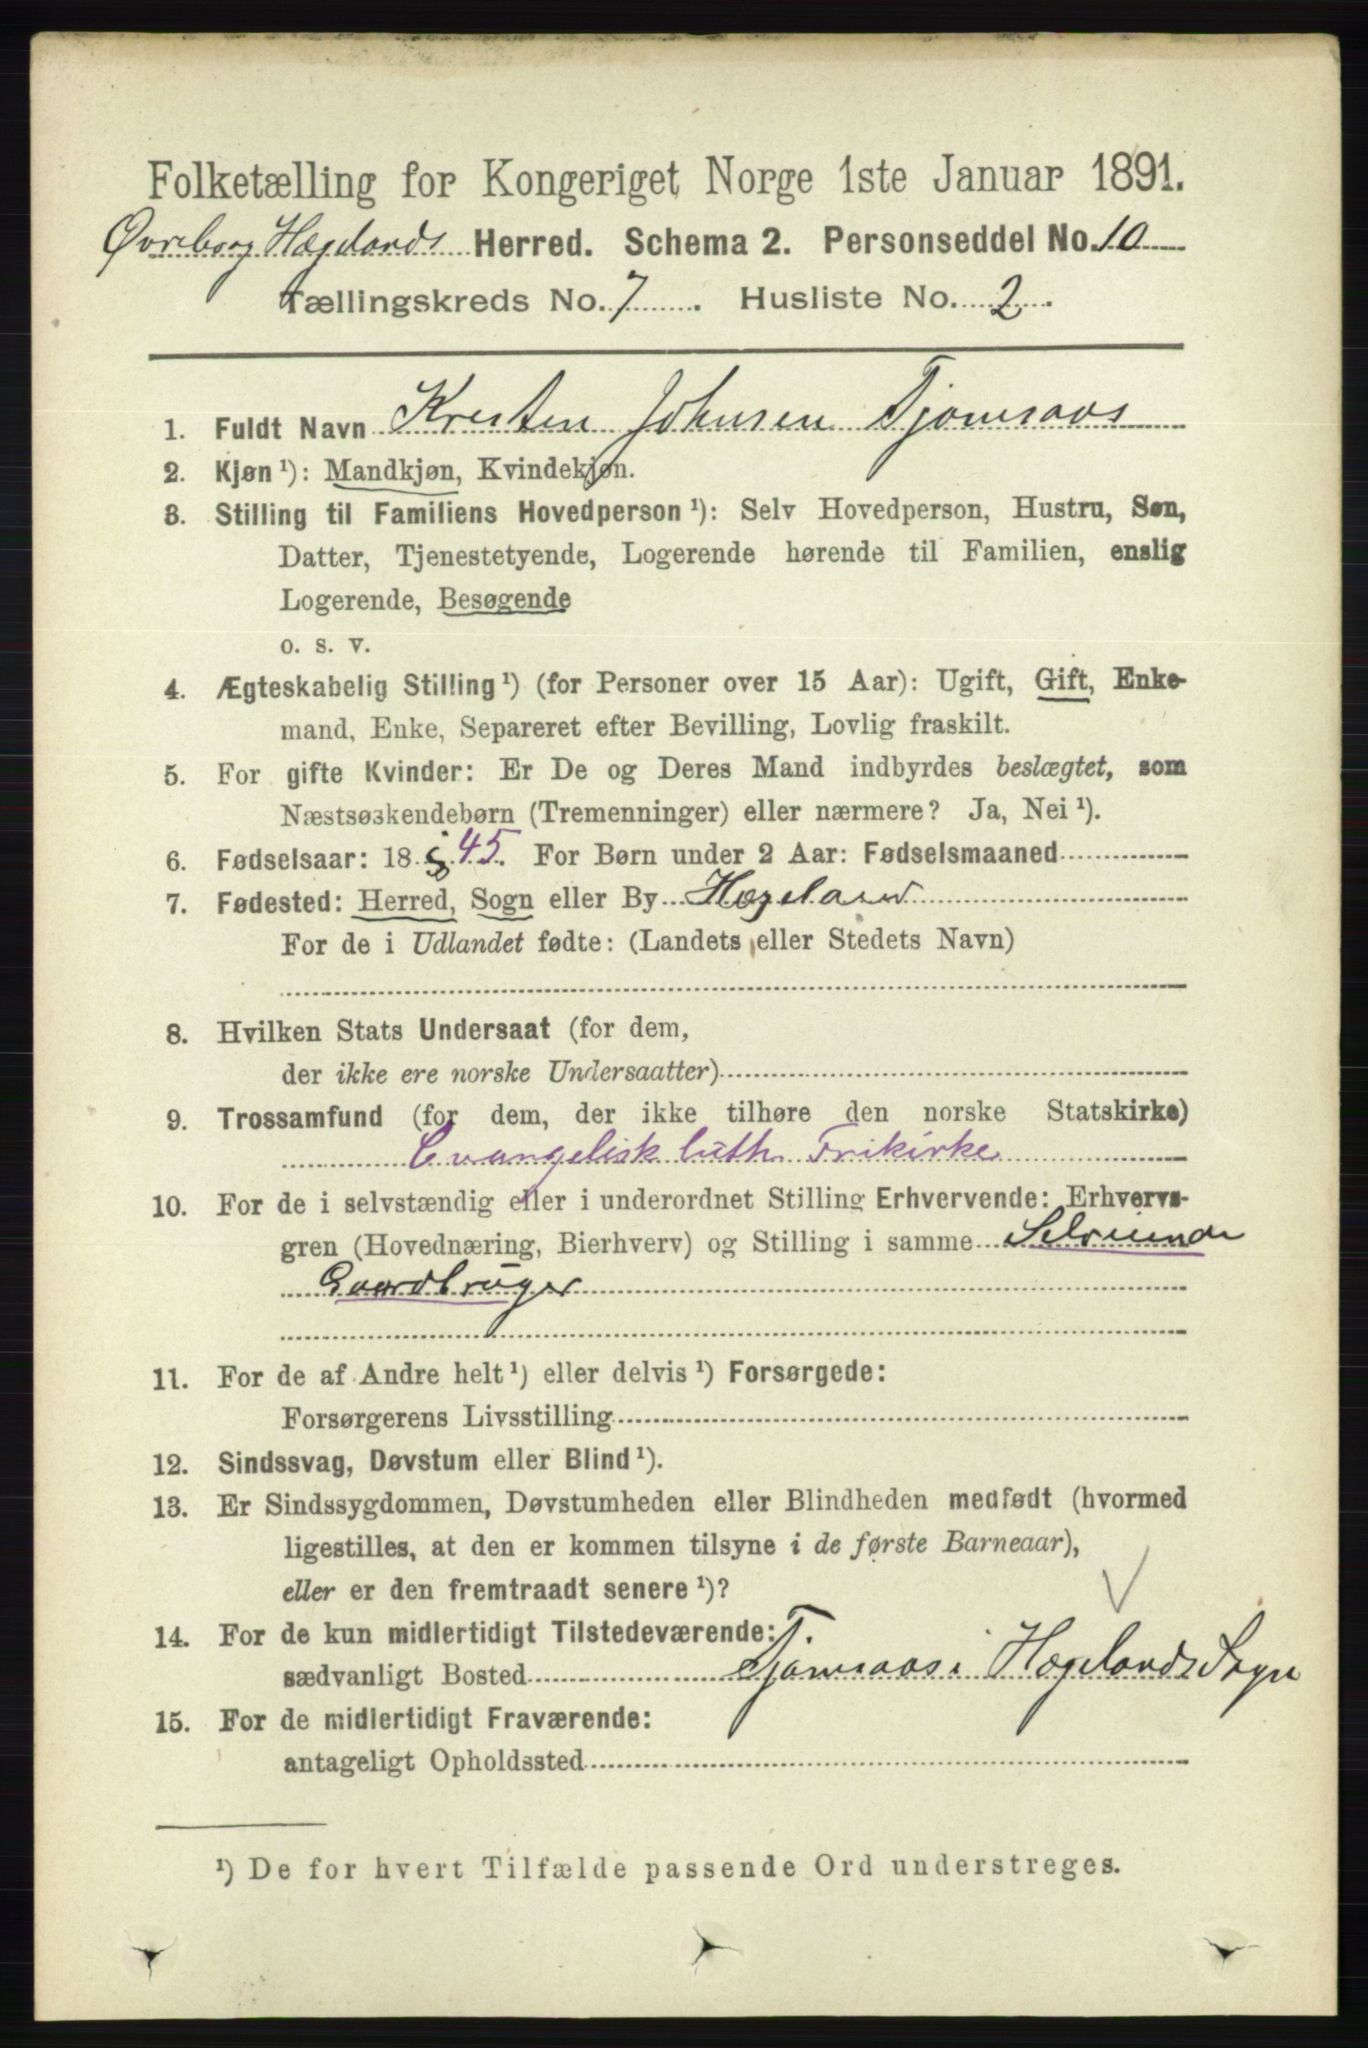 Folketælling for Kongeriget Norge 1ste Januar 1891.
Øvrebø og Hægelands Herred. Schema 2. Personseddel No. 10
Tællingskreds No. 7. Husliste No. 2.
1. Fuldt Navn Kristen Johnsen Tjomsaas
2. Kjøn ¹): Mandkjøn, Kvindekjøn.
3. Stilling til Familiens Hovedperson ¹): Selv Hovedperson, Hustru, Søn,
Datter, Tjenestetyende, Logerende hørende til Familien, enslig
Logerende, Besøgende
o. s. v.
4. Ægteskabelig Stilling ¹) (for Personer over 15 Aar): Ugift, Gift, Enke-
mand, Enke, Separeret efter Bevilling, Lovlig fraskilt.
5. For gifte Kvinder: Er De og Deres Mand indbyrdes beslægtet, som
Næstsøskendebørn (Tremenninger) eller nærmere? Ja, Nei ¹).
6. Fødselsaar: 18 45. For Børn under 2 Aar: Fødselsmaaned
7. Fødested: Herred, Sogn eller By Hægeland
For de i Udlandet fødte: (Landets eller Stedets Navn)
8. Hvilken Stats Undersaat (for dem,
der ikke ere norske Undersaatter)
9. Trossamfund (for dem, der ikke tilhøre den norske Statskirke)
Evangelisk luth Frikirke
10. For de i selvstændig eller i underordnet Stilling Erhvervende: Erhvervs-
gren (Hovednæring, Bierhverv) og Stilling i samme Selveiende
Gaardbruger
11. For de af Andre helt ¹) eller delvis ¹) Forsørgede:
Forsørgerens Livsstilling
12. Sindssvag, Døvstum eller Blind ¹).
13. Er Sindssygdommen, Døvstumheden eller Blindheden medfødt (hvormed
ligestilles, at den er kommen tilsyne i de første Barneaar),
eller er den fremtraadt senere ¹)?
14. For de kun midlertidigt Tilstedeværende:
sædvanligt Bosted Tjomsaas i Hægelands Sogn
15. For de midlertidigt Fraværende:
antageligt Opholdssted
¹) De for hvert Tilfælde passende Ord understreges.